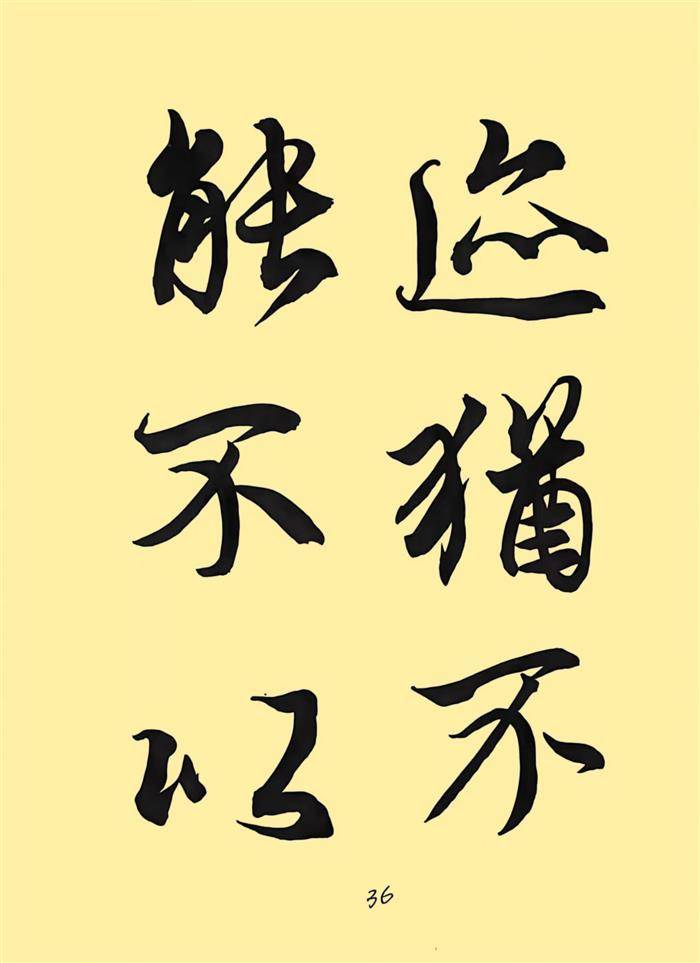 迹犹不
能不以
36